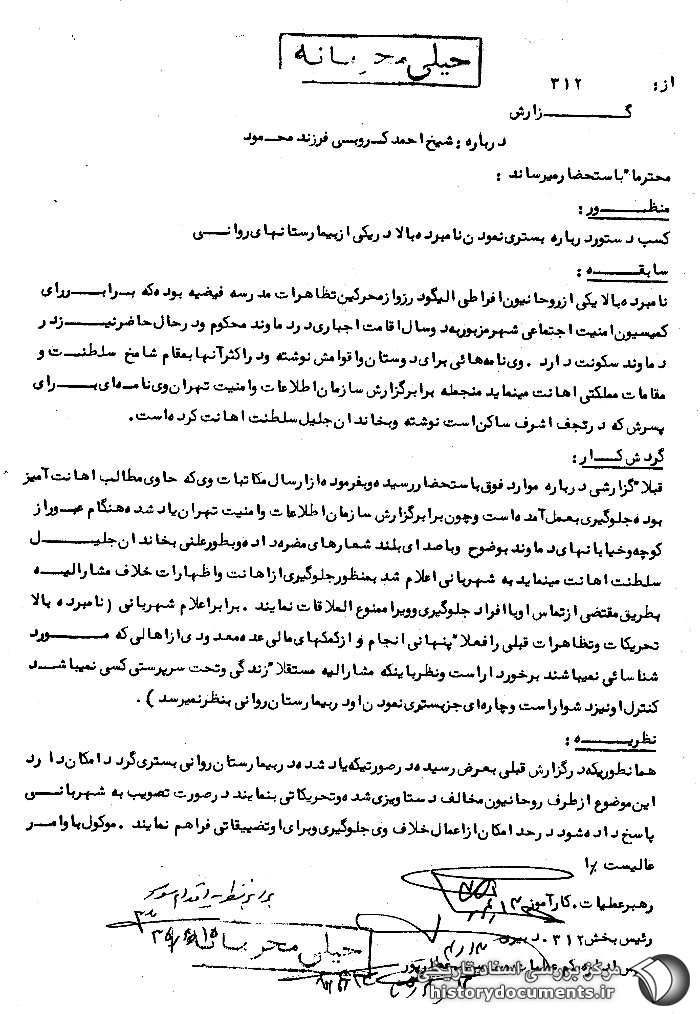 خیلی محرمانه
از: ۳۱۲
گزارش
درباره: شیخ احمد کروبی فرزند محمود
محترماً باستحضار میرساند:
منظور:
کسب دستور درباره بستری نمودن نامبرده بالا در یکی از بیمارستانهای روانی
سابقه:
نامبرده بالا یکی از روحانیون افراطی الیگودرز و از محرکین تظاهرات مدرسه فیضیه بوده که برابر رای
کمیسیون امنیت اجتماعی شهر مزبور به دو سال اقامت اجباری در دماوند محکوم و در حال حاضر نیز در
دماوند سکونت دارد. وی نامه‌هائی برای دوستان و اقوامش نوشته و در اکثر آنها بمقام شامخ سلطنت و
مقامات مملکتی اهانت مینماید منجمله برابر گزارش سازمان اطلاعات و امنیت تهران وی نامه‌ای برای
پسرش که در نجف اشرف ساکن است نوشته و بخاندان جلیل سلطنت اهانت کرده است.
گردش کار:
قبلاً گزارشی درباره موارد فوق باستحضار رسیده و بفرموده از ارسال مکاتبات وی که حاوی مطالب اهانت آمیز
بوده جلوگیری بعمل آمده است و چون برابر گزارش سازمان اطلاعات و امنیت تهران یاد شده هنگام عبور از
کوچه و خیابانهای دماوند بوضوح و با صدای بلند شعارهای مضره داده و بطور علنی بخاندان جلیل
سلطنت اهانت مینماید به شهربانی اعلام شد بمنظور جلوگیری از اهانت و اظهارات خلاف مشارالیه
بطریق مقتضی از تماس او با افراد جلوگیری و ویرا ممنوع الملاقات نمایند. برابر اعلام شهربانی (نامبرده بالا
تحریکات و تظاهرات قبلی را فعلاً پنهانی انجام و از کمکهای مالی عده معدودی از اهالی که مورد
شناسائی نمیباشند برخوردار است و نظر باینکه مشارالیه مستقلاً زندگی و تحت سرپرستی کسی نمیباشد
کنترل او نیز دشوار است و چاره‌ای جز بستری نمودن او در بیمارستان روانی بنظر نمیرسد).
نظریه:
همانطوریکه در گزارش قبلی بعرض رسیده در صورتیکه یاد شده در بیمارستان روانی بستری گردد امکان دارد
این موضوع از طرف روحانیون مخالف دستاویزی شده و تحریکاتی بنمایند در صورت تصویب به شهربانی
پاسخ داده شود در حد امکان از اعمال خلاف وی جلوگیری و برای او تضییقاتی فراهم نمایند. موکول باوامر
عالیست
رهبر عملیات. کارآموز
رئیس بخش ۳۱۲.
خیلی محرمانه
مرکز بررسی اسناد تاریخی
historydocuments.ir